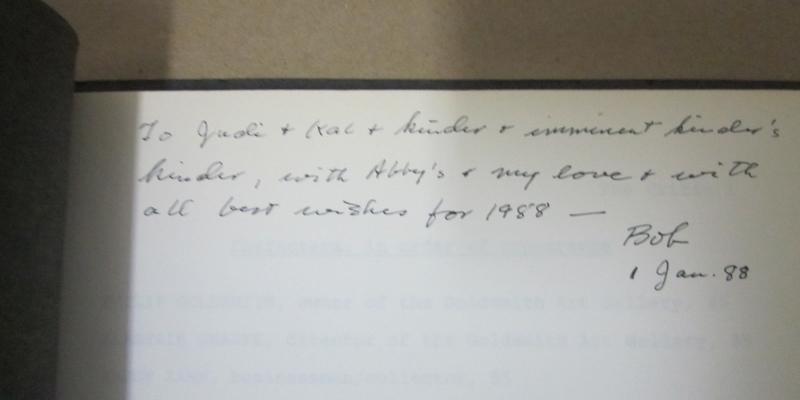 To Judi + Kal + kinder + imminent kinder's
kinder, with Abby's + my love + with
all best wishes for 1988 —
Bob
1 Jan. 88
Characters, in order of appearance
GOLDSMITH, owner of the Goldsmith Art Gallery,
director of the Goldsmith Art Gallery,
businessman/collector, 55